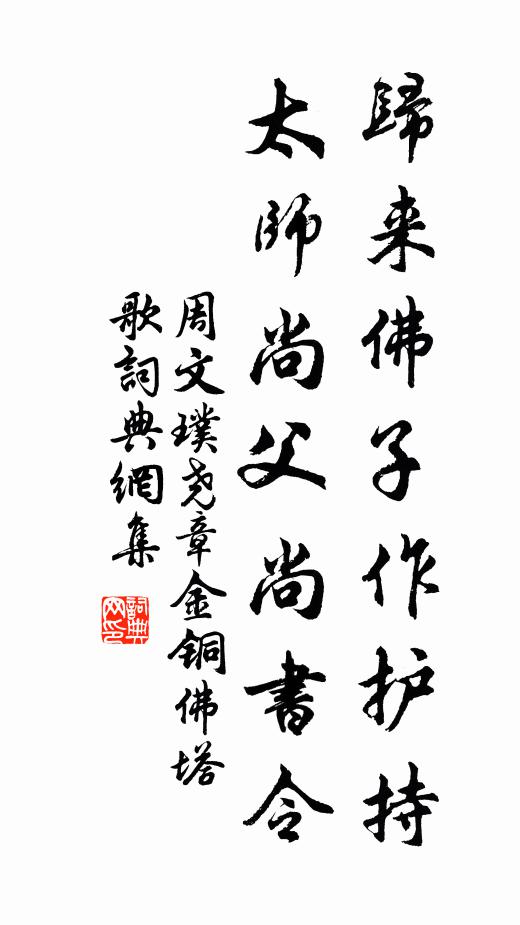 歸来佛子作护持
太師尚父尚書令
周文璞尧章金銅佛塔
歌詞典網集
詞典
网印